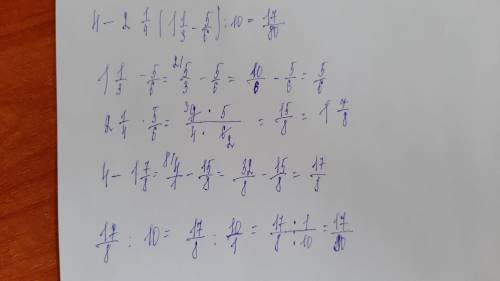 4 - 2 1/4 (1 1/3 - 5/6) : 10 = 17/80
1 1/3 - 5/6 = 2/ 5/3 - 5/6 = 10/6 - 5/6 = 5/6
2 1/4 · 5/6 = 3 9 · 5 / 4 · 6 2 = 15/8 = 1 7/8
4 - 1 7/8 = 8/ 4/1 - 15/8 = 32/8 - 15/8 = 17/8
17/8 : 10 = 17/8 : 10/1 = 17 · 1 / 8 · 10 = 17/80